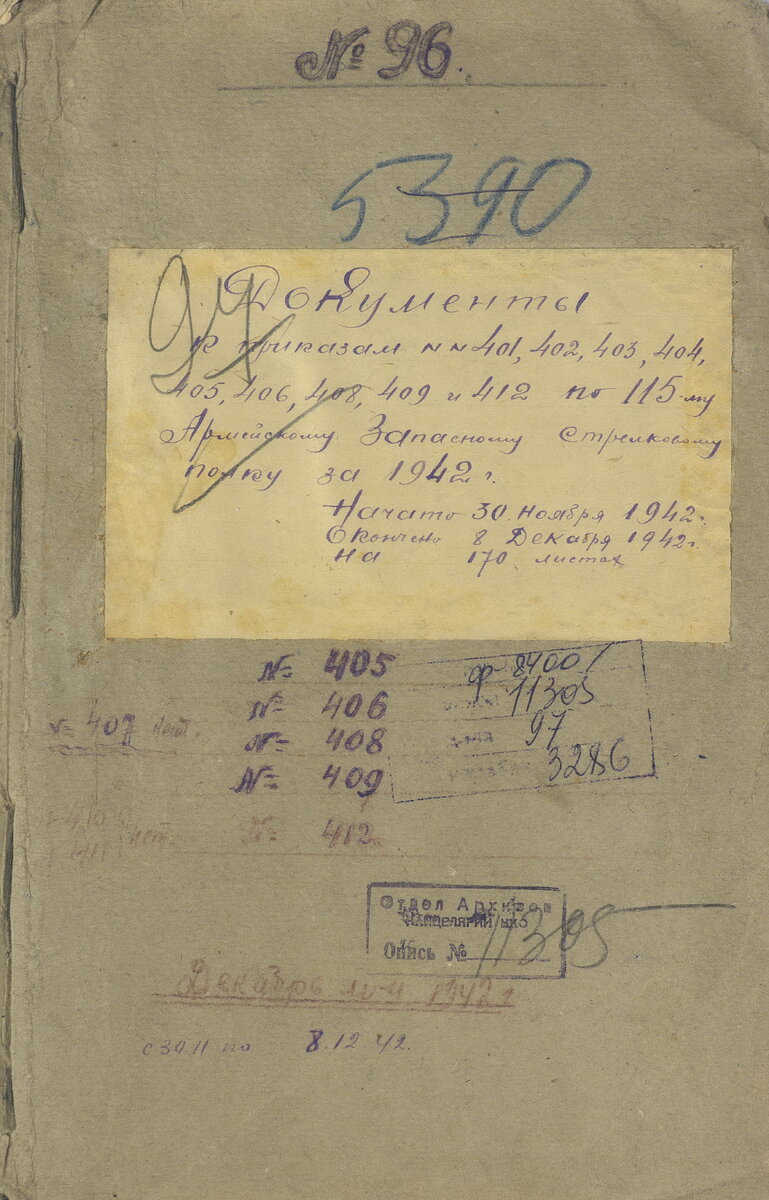 № 96.
5390
97
Документы
к приказам №№ 401, 402, 403, 404,
405, 406, 408, 409 и 412 по 115-му
Армейскому Запасному стрелковому
полку за 1942 г.
Начато 30 ноября 1942 г.
Окончено 8 Декабря 1942 г.
на 170 листах
№ 405
№ 406
№ 407 нет.
№ 408
№ 409
№ 412
ф 8400
11305
97
3286
Отдел Архивов
Канцелярии НКО
Опись № 11305
Декабрь 1942 г
с 30.11 по 8.12.42.